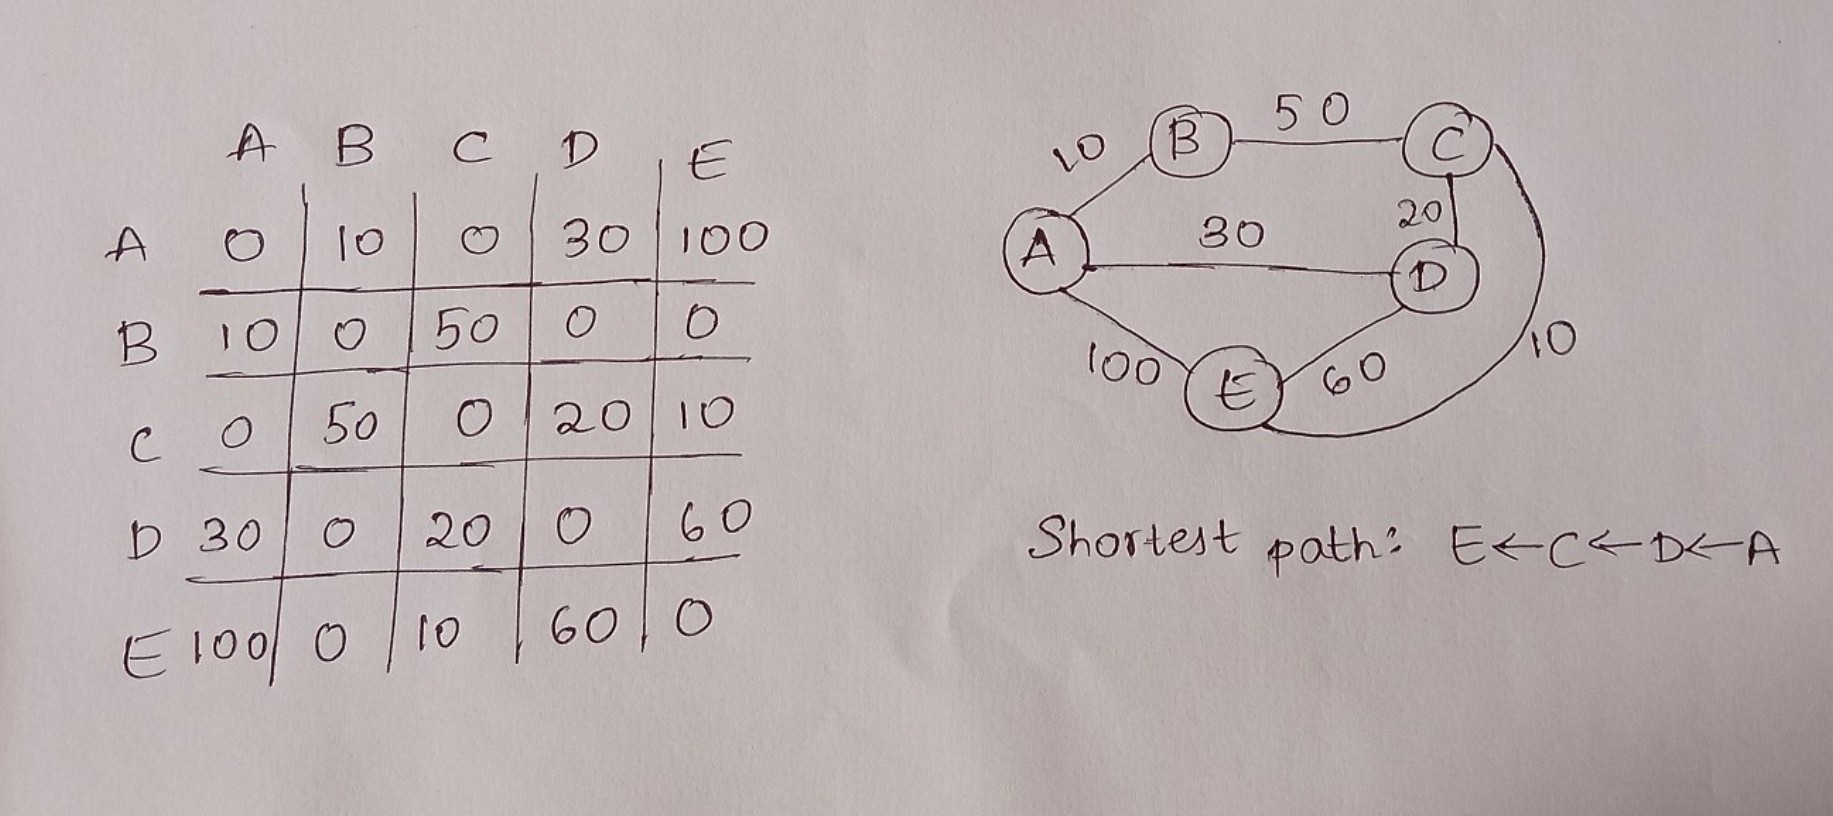 A B C D E
A 0 10 0 30 100
B 10 0 50 0 0
C 0 50 0 20 10
D 30 0 20 0 60
E 100 0 10 60 0
50
10 B C
20
30
A D
10
100 E 60
Shortest path: E←C←D←A